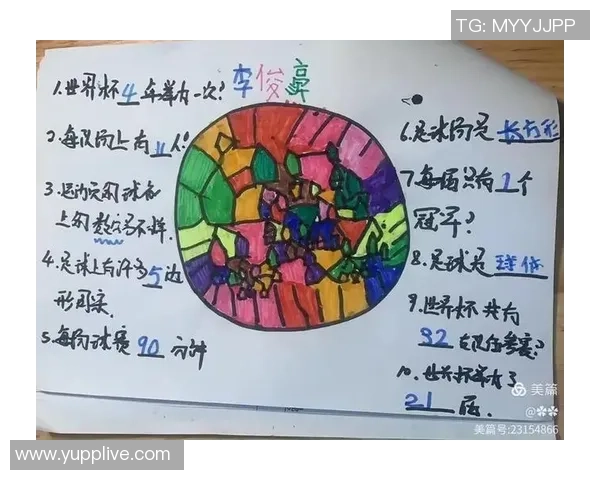 TG: MYYJJPP
李俊豪
1.世界杯4年举办一次?
2.每队场上有11人?
3.运动员的球衣
上的数字不一样.
4.足球上有许多5边
形图案.
5.每场球赛90分钟
6.足球场是长方形
7.每届只有1个
冠军?
8.足球是球体
9.世界杯共有
32支队伍参赛?
10.世界杯举办了
21届.
美篇
@
美篇号:23154866
www.yupplive.com